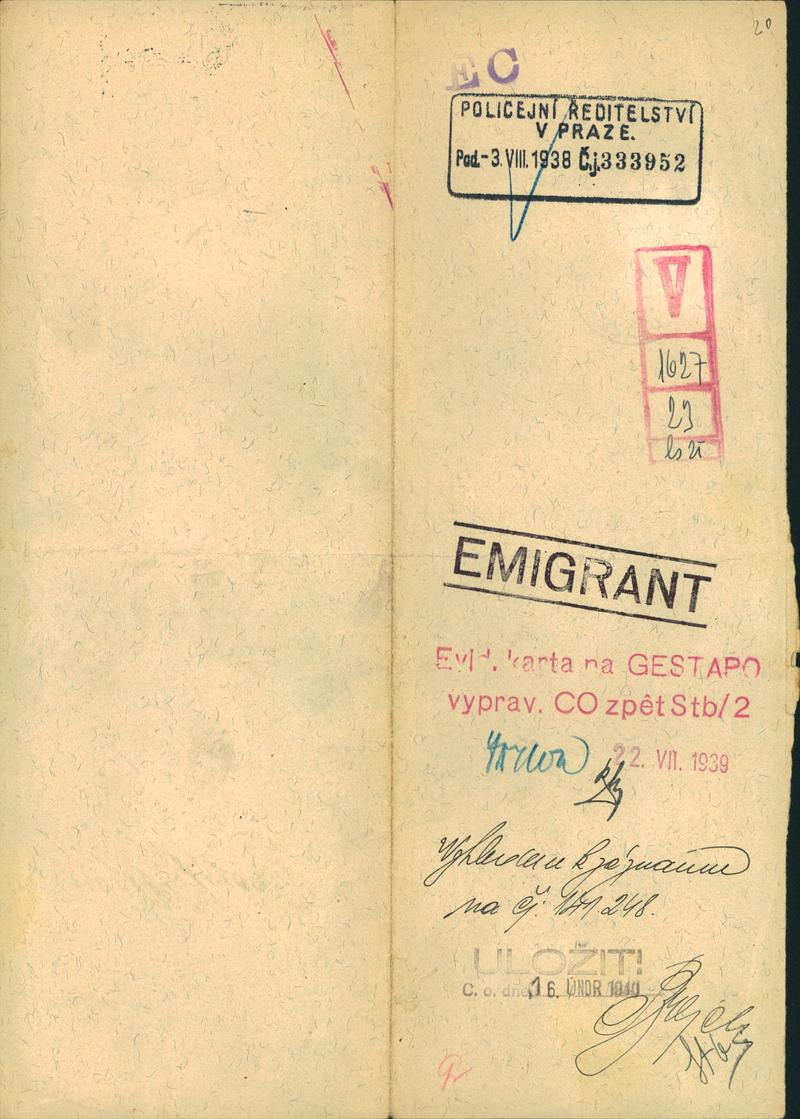 20
EC
POLICEJNÍ ŘEDITELSTVÍ
V PRAZE.
Pod. -3. VIII. 1938 Č.j. 333952
V
1627
23
EMIGRANT
Evid. karta na GESTAPO
vyprav. CO zpět Stb/2
22. VII. 1939
na čj. 141 248.
ULOŽIT!
C. o. dne 16. ÚNOR 1940